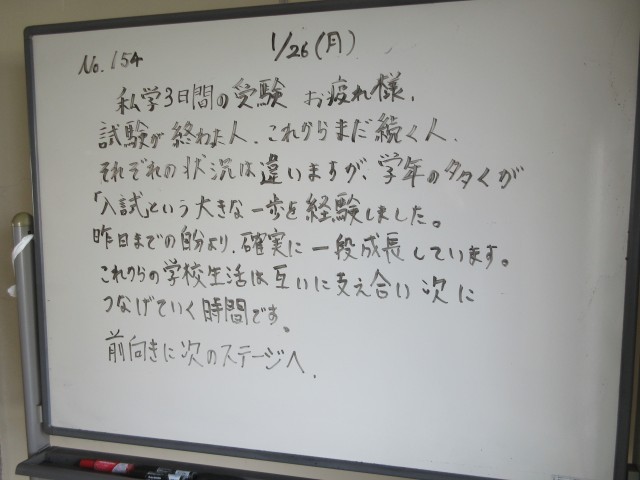 No. 154
1/26(月)
私学3日間の受験 お疲れ様.
試験が終わった人.これからまだ続く人.
それぞれの状況は違いますが、学年の多くが
「入試」という大きな一歩を経験しました。
昨日までの自分より、確実に一段成長しています。
これからの学校生活は互いに支え合い次に
つなげていく時間です。
前向きに次のステージへ.